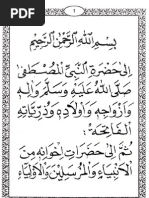 ١
بِسْمِ اللهِ الرَّحْمٰنِ الرَّحِيْمِ
اِلَى حَضْرَةِ النَّبِيِّ الْمُصْطَفَى
صَلَّى اللهُ عَلَيْهِ وَسَلَّمَ وَاٰلِهِ
وَاَزْوَاجِهِ وَاَوْلَادِهِ وَذُرِّيَّاتِهِ
الْفَاتِحَةْ:
ثُمَّ اِلَى حَضَرَاتِ اِخْوَانِهِ مِنَ
الْاَنْبِيَآءِ وَالْمُرْسَلِيْنَ وَالْاَوْلِيَآءِ